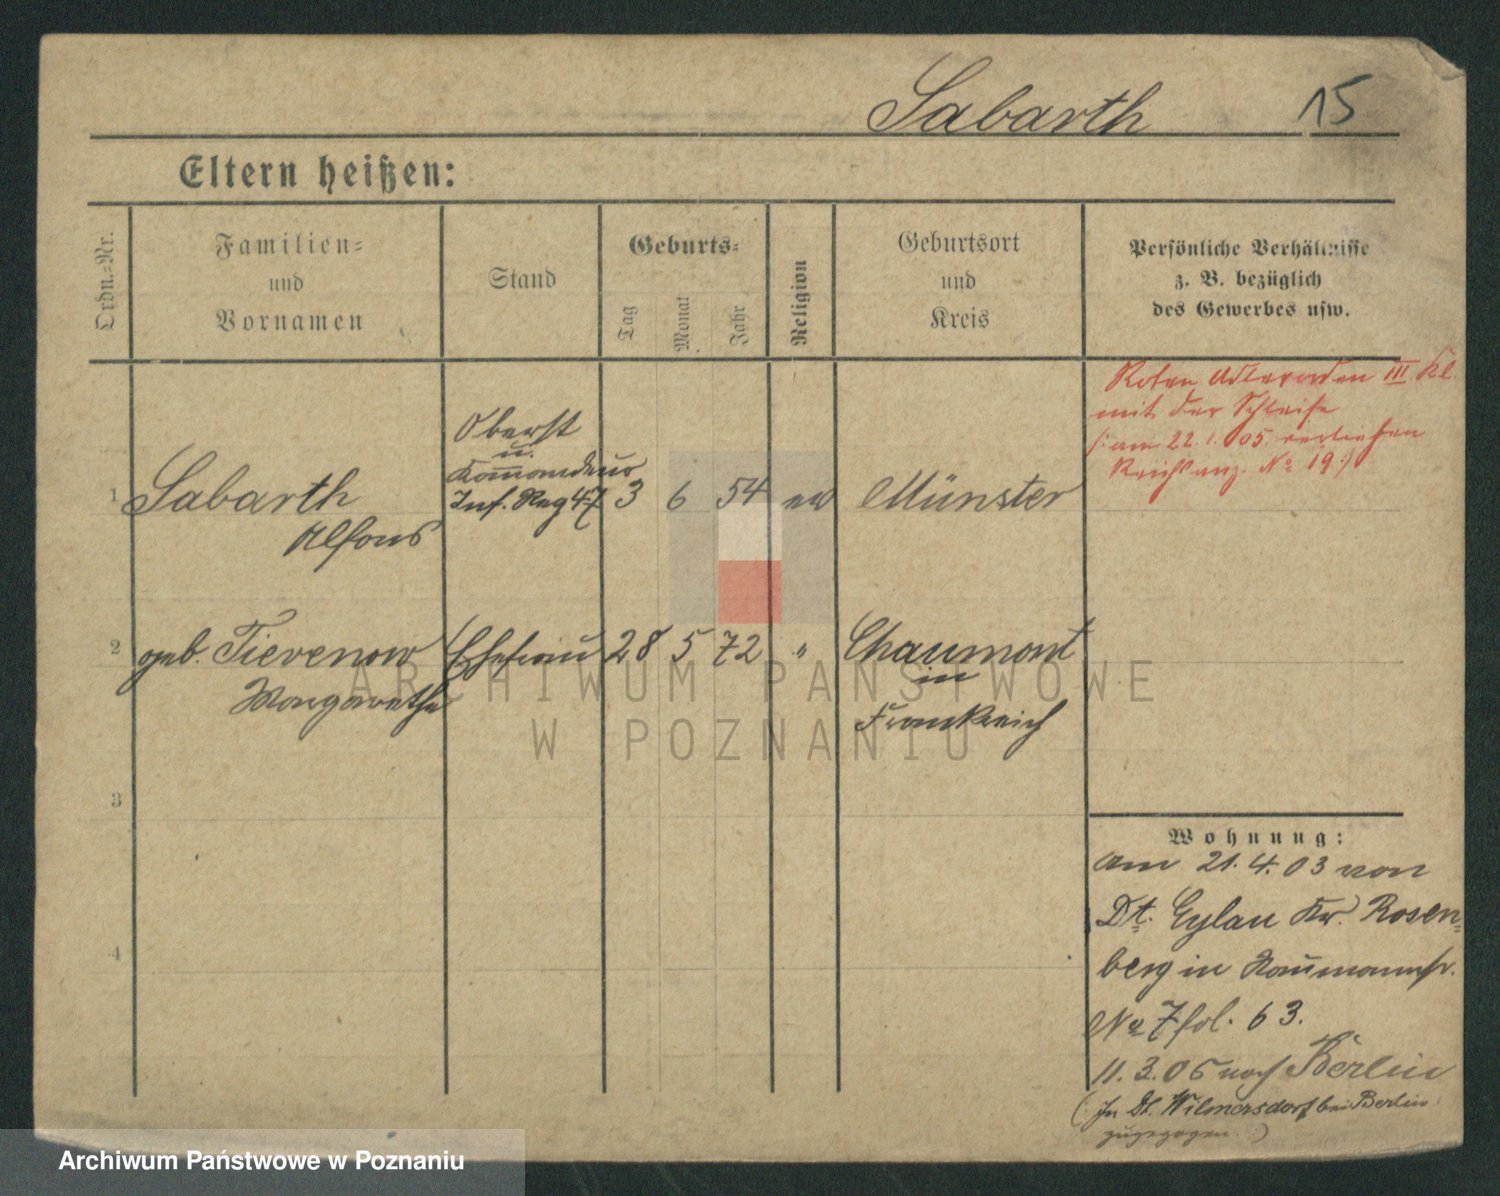 Sabarth 15
Eltern heißen:
Ordn.-Nr.
Familien-
und
Vornamen
Stand
Geburts-
Tag
Monat
Jahr
Religion
Geburtsort
und
Kreis
Persönliche Verhältnisse
z. B. bezüglich
des Gewerbes usw.
Roten Adlerorden III. Kl.
mit der Schleife
(: am 22.1.05. verliehen
Reichsanz. No 19:)
Oberst
u.
Kommandeur
1 Sabarth Inf. Reg 47 3 6 54 ev Münster
Alfons
2 geb. Tievenow Ehefrau 28 5 72 " Chaumont
Margarethe
in
Frankreich
3
4
Wohnung:
am 21.4.03 von
Dt. Eylau Kr. Rosen-
berg in Naumannstr.
No 7 fol. 63.
11.3.05 nach Berlin
(: In Dt. Wilmersdorf bei Berlin
zugezogen. )
ARCHIWUM PAŃSTWOWE
W POZNANIU
Archiwum Państwowe w Poznaniu